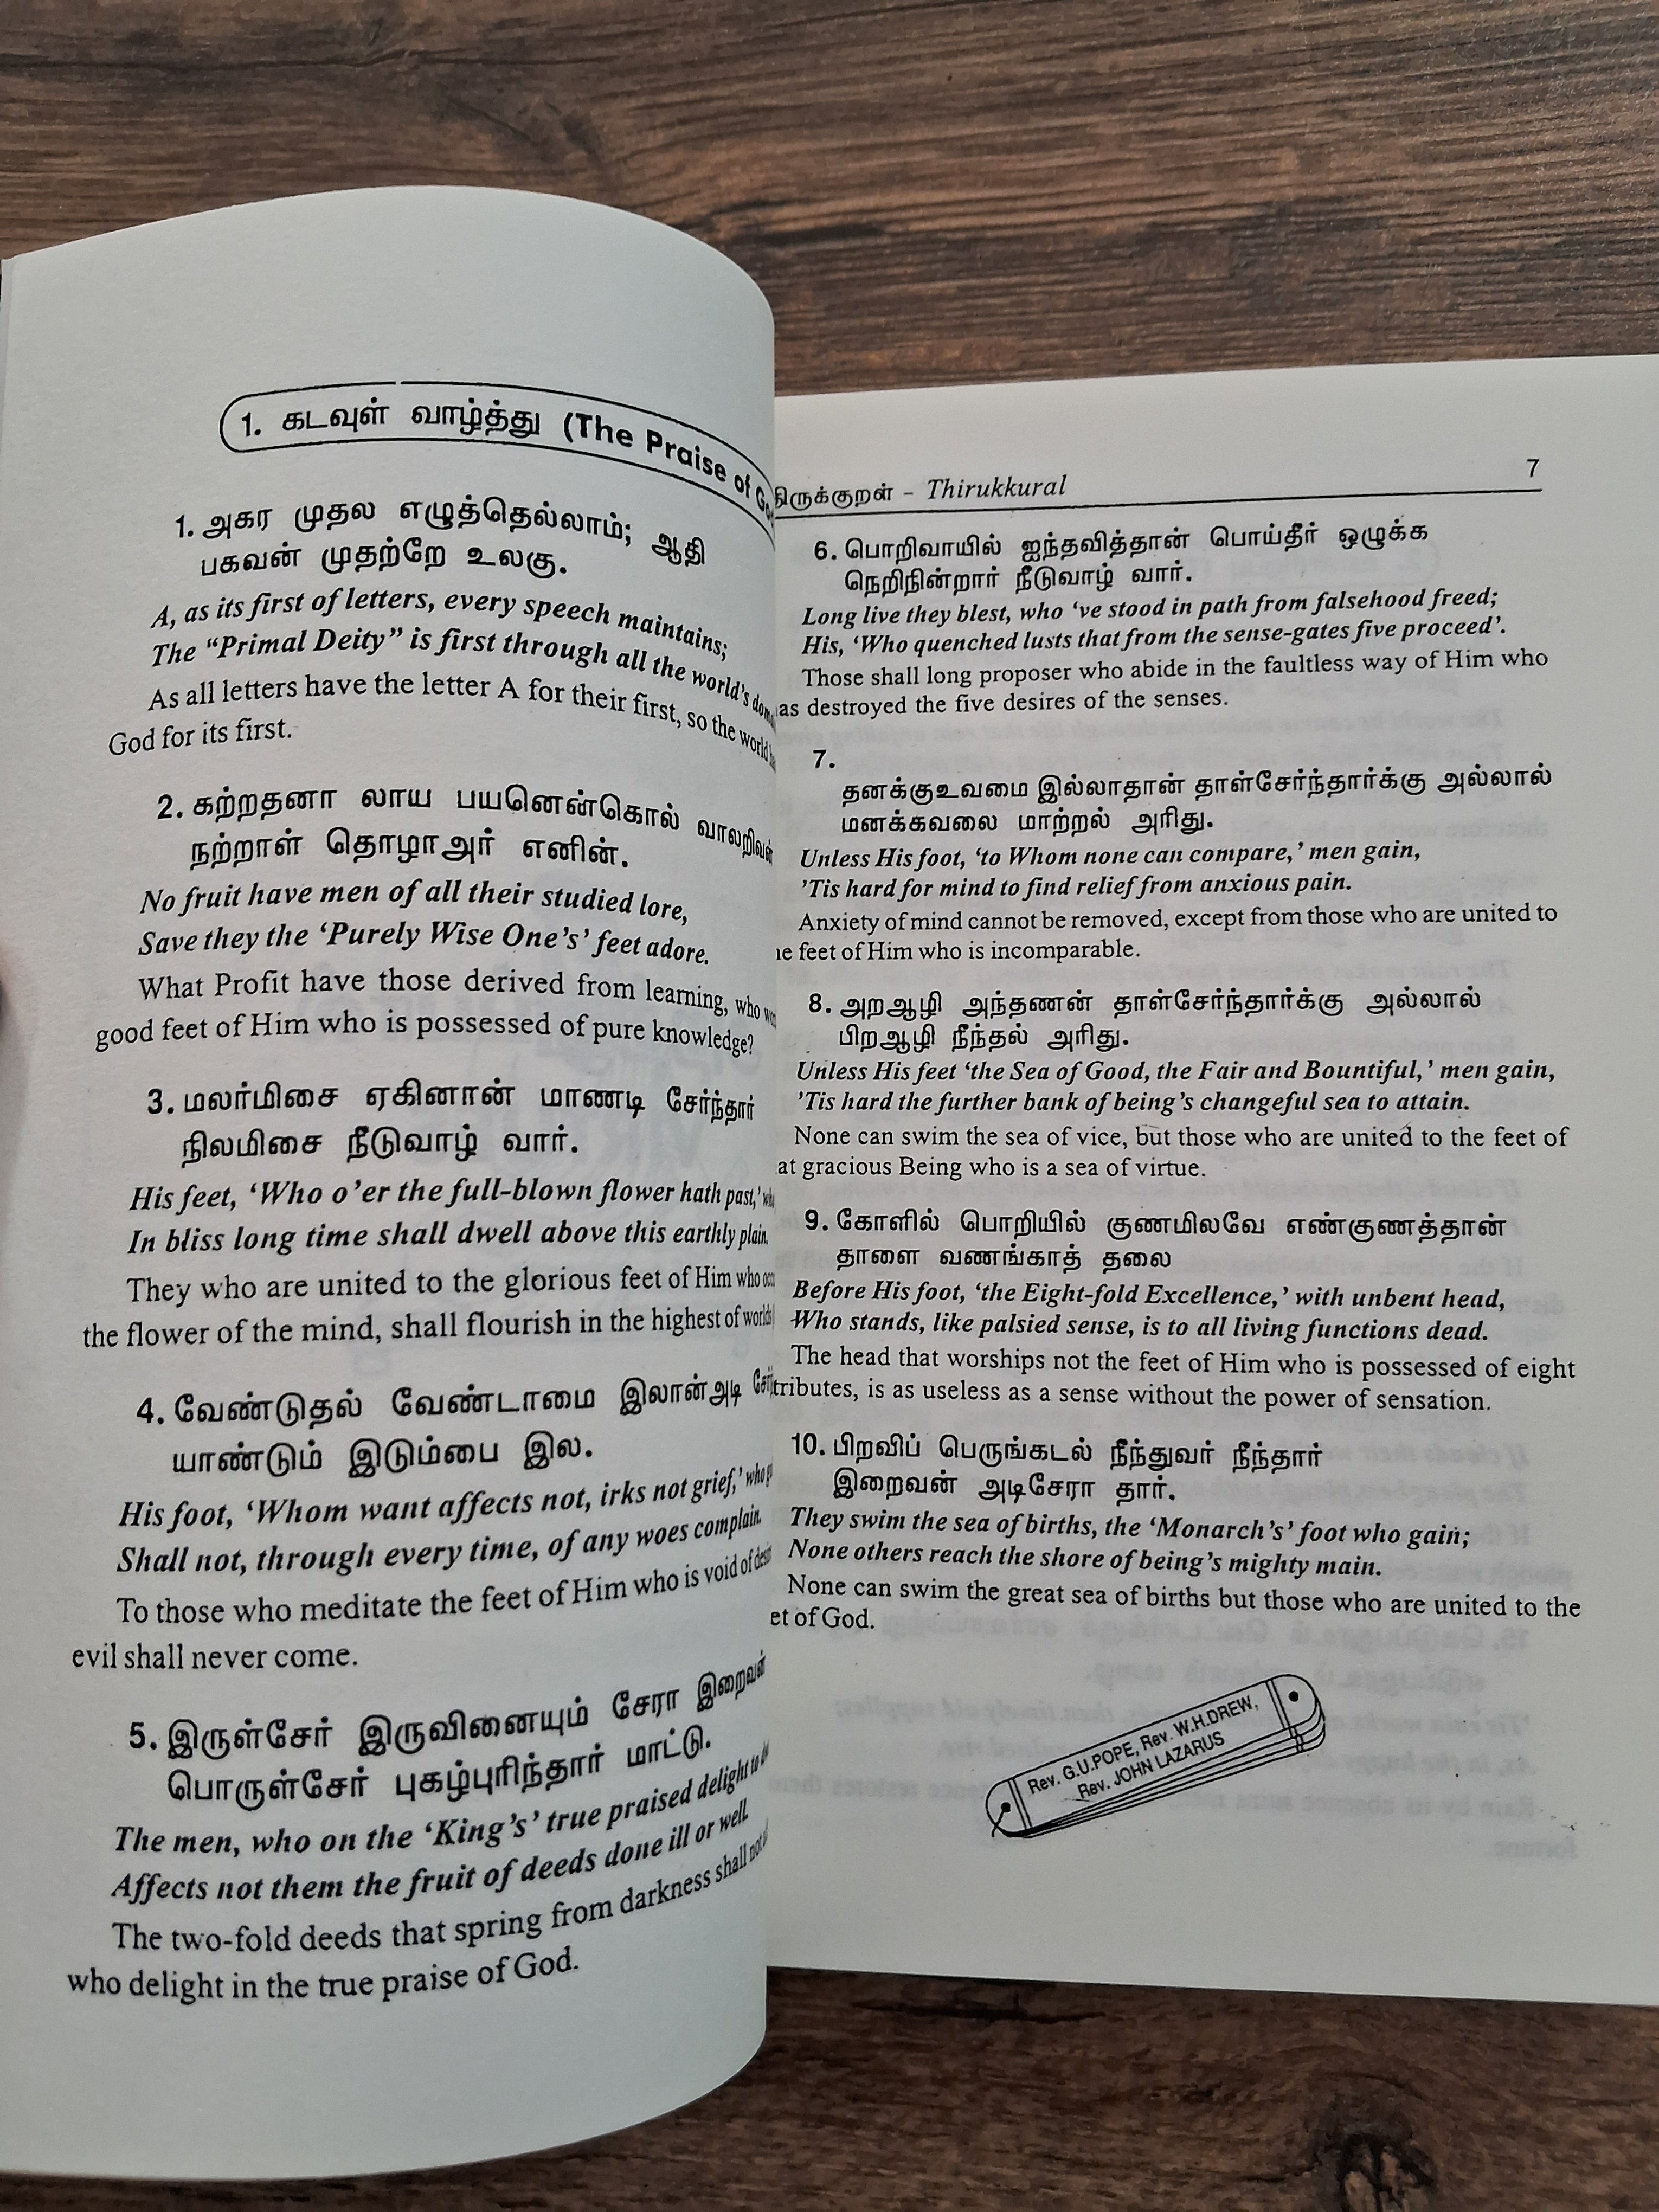 1. கடவுள் வாழ்த்து (The Praise of
1. அகர முதல எழுத்தெல்லாம்; ஆதி
பகவன் முதற்றே உலகு.
A, as its first of letters, every speech maintains;
The “Primal Deity” is first through all the world's
As all letters have the letter A for their first, so the world
God for its first.
2. கற்றதனா லாய பயனென்கொல் வாலறிவன்
நற்றாள் தொழாஅர் எனின்.
No fruit have men of all their studied lore,
Save they the ‘Purely Wise One’s’ feet adore.
What Profit have those derived from learning, who
good feet of Him who is possessed of pure knowledge?
3. மலர்மிசை ஏகினான் மாணடி சேர்ந்தார்
நிலமிசை நீடுவாழ் வார்.
His feet, ‘Who o’er the full-blown flower hath past,’
In bliss long time shall dwell above this earthly plain.
They who are united to the glorious feet of Him who
the flower of the mind, shall flourish in the highest of worlds
4. வேண்டுதல் வேண்டாமை இலான்அடி
யாண்டும் இடும்பை இல.
His foot, ‘Whom want affects not, irks not grief,’ who
Shall not, through every time, of any woes complain.
To those who meditate the feet of Him who is void of
evil shall never come.
5. இருள்சேர் இருவினையும் சேரா இறைவன்
பொருள்சேர் புகழ்புரிந்தார் மாட்டு.
The men, who on the ‘King’s’ true praised delight to
Affects not them the fruit of deeds done ill or well.
The two-fold deeds that spring from darkness shall not
who delight in the true praise of God.
திருக்குறள் – Thirukkural 7
6. பொறிவாயில் ஐந்தவித்தான் பொய்தீர் ஒழுக்க
நெறிநின்றார் நீடுவாழ் வார்.
Long live they blest, who ‘ve stood in path from falsehood freed;
His, ‘Who quenched lusts that from the sense-gates five proceed’.
Those shall long proposer who abide in the faultless way of Him who
as destroyed the five desires of the senses.
7.
தனக்குஉவமை இல்லாதான் தாள்சேர்ந்தார்க்கு அல்லால்
மனக்கவலை மாற்றல் அரிது.
Unless His foot, ‘to Whom none can compare,’ men gain,
’Tis hard for mind to find relief from anxious pain.
Anxiety of mind cannot be removed, except from those who are united to
e feet of Him who is incomparable.
8. அறஆழி அந்தணன் தாள்சேர்ந்தார்க்கு அல்லால்
பிறஆழி நீந்தல் அரிது.
Unless His feet ‘the Sea of Good, the Fair and Bountiful,’ men gain,
’Tis hard the further bank of being’s changeful sea to attain.
None can swim the sea of vice, but those who are united to the feet of
at gracious Being who is a sea of virtue.
9. கோளில் பொறியில் குணமிலவே எண்குணத்தான்
தாளை வணங்காத் தலை
Before His foot, ‘the Eight-fold Excellence,’ with unbent head,
Who stands, like palsied sense, is to all living functions dead.
The head that worships not the feet of Him who is possessed of eight
tributes, is as useless as a sense without the power of sensation.
10. பிறவிப் பெருங்கடல் நீந்துவர் நீந்தார்
இறைவன் அடிசேரா தார்.
They swim the sea of births, the ‘Monarch’s’ foot who gain;
None others reach the shore of being’s mighty main.
None can swim the great sea of births but those who are united to the
et of God.
Rev. G.U.POPE, Rev. W.H.DREW,
Rev. JOHN LAZARUS